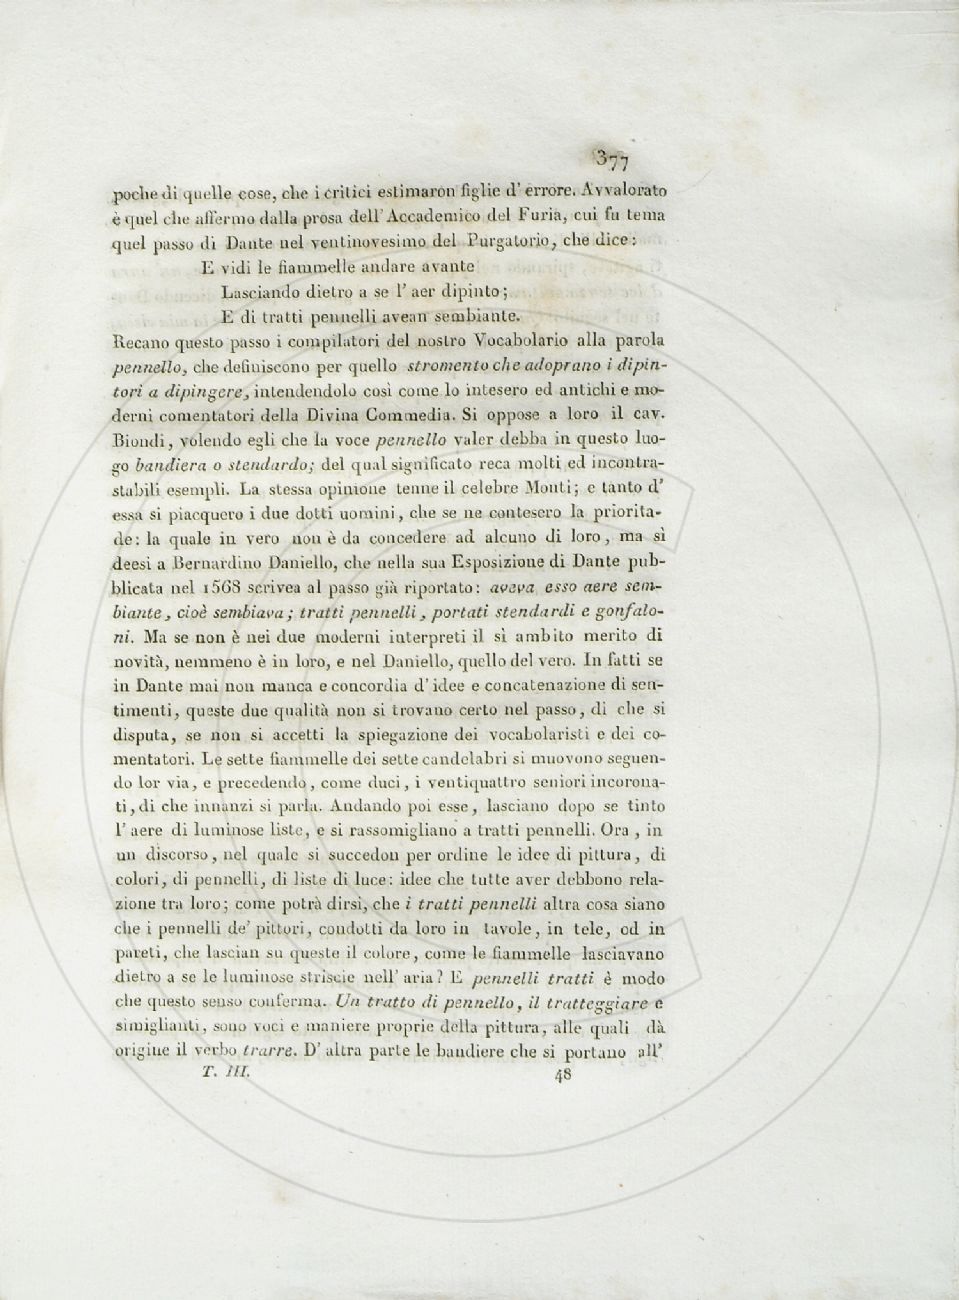 377
poche di quelle cose, che i critici estimaron figlie d' errore. Avvalorato
è quel che affermo dalla prosa dell' Accademico del Furia, cui fu tema
quel passo di Dante nel ventinovesimo del Purgatorio, che dice:
E vidi le fiammelle andare avante
Lasciando dietro a se l' aer dipinto;
E di tratti pennelli avean sembiante.
Recano questo passo i compilatori del nostro Vocabolario alla parola
pennello, che definiscono per quello stromento che adoprano i dipin-
tori a dipingere, intendendolo così come lo intesero ed antichi e mo-
derni comentatori della Divina Commedia. Si oppose a loro il cav.
Biondi, volendo egli che la voce pennello valer debba in questo luo-
go bandiera o stendardo; del qual significato reca molti ed incontra-
stabili esempli. La stessa opinione tenne il celebre Monti; e tanto d'
essa si piacquero i due dotti uomini, che se ne contesero la priorita-
de: la quale in vero non è da concedere ad alcuno di loro, ma sì
deesi a Bernardino Daniello, che nella sua Esposizione di Dante pub-
blicata nel 1568 scrivea al passo già riportato: aveva esso aere sem-
biante, cioè sembiava; tratti pennelli, portati stendardi e gonfalo-
ni. Ma se non è nei due moderni interpreti il sì ambito merito di
novità, nemmeno è in loro, e nel Daniello, quello del vero. In fatti se
in Dante mai non manca e concordia d' idee e concatenazione di sen-
timenti, queste due qualità non si trovano certo nel passo, di che si
disputa, se non si accetti la spiegazione dei vocabolaristi e dei co-
mentatori. Le sette fiammelle dei sette candelabri si muovono seguen-
do lor via, e precedendo, come duci, i ventiquattro seniori incorona-
ti, di che innanzi si parla. Andando poi esse, lasciano dopo se tinto
l' aere di luminose liste, e si rassomigliano a tratti pennelli. Ora, in
un discorso, nel quale si succedon per ordine le idee di pittura, di
colori, di pennelli, di liste di luce: idee che tutte aver debbono rela-
zione tra loro; come potrà dirsi, che i tratti pennelli altra cosa siano
che i pennelli de' pittori, condotti da loro in tavole, in tele, od in
pareti, che lascian su queste il colore, come le fiammelle lasciavano
dietro a se le luminose striscie nell' aria? E pennelli tratti è modo
che questo senso conferma. Un tratto di pennello, il tratteggiare e
simiglianti, sono voci e maniere proprie della pittura, alle quali dà
origine il verbo trarre. D' altra parte le bandiere che si portano all'
T. III. 48